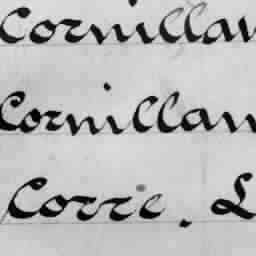 Cornillan
Cornillan
Corre. L